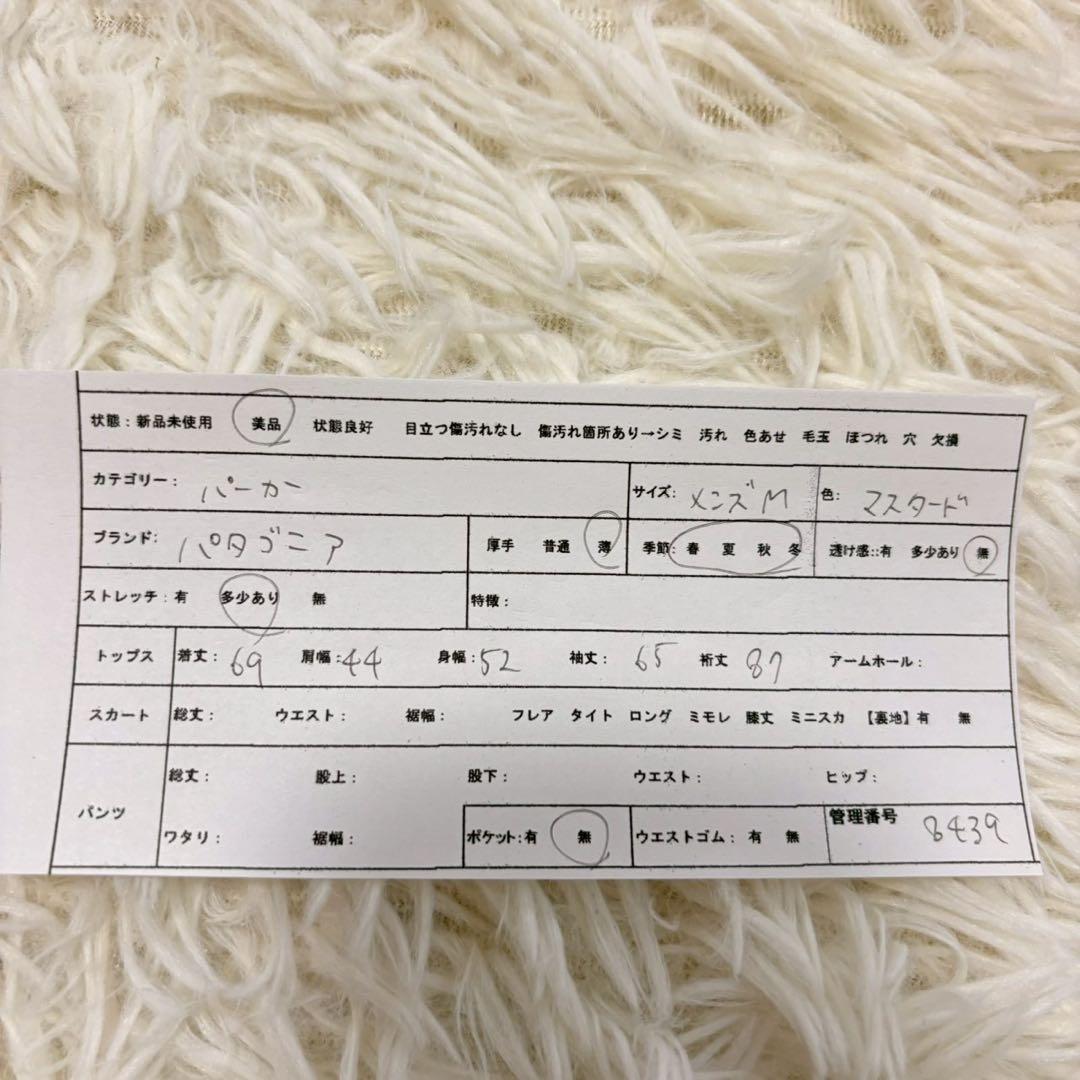 状態：新品未使用 美品 状態良好 目立つ傷汚れなし 傷汚れ箇所あり→シミ 汚れ 色あせ 毛玉 ほつれ 穴 欠損
カテゴリー： パーカー サイズ: メンズM 色: マスタード
ブランド: パタゴニア 厚手 普通 薄 季節: 春 夏 秋 冬 透け感::有 多少あり 無
ストレッチ：有 多少あり 無 特徴：
トップス 着丈：69 肩幅:44 身幅:52 袖丈： 65 裄丈 87 アームホール：
スカート 総丈： ウエスト： 裾幅： フレア タイト ロング ミモレ 膝丈 ミニスカ 【裏地】有 無
総丈： 股上： 股下： ウエスト： ヒップ：
パンツ
ワタリ： 裾幅： ポケット:有 無 ウエストゴム： 有 無 管理番号 8439